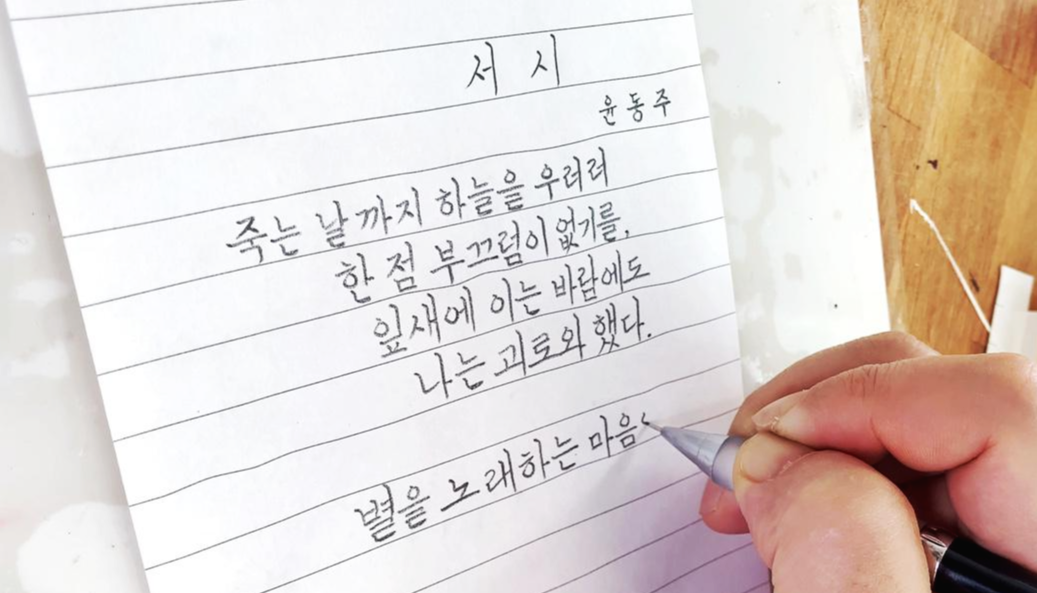 서 시
윤동주
죽는 날까지 하늘을 우러러
한 점 부끄럼이 없기를,
잎새에 이는 바람에도
나는 괴로와 했다.
별을 노래하는 마음